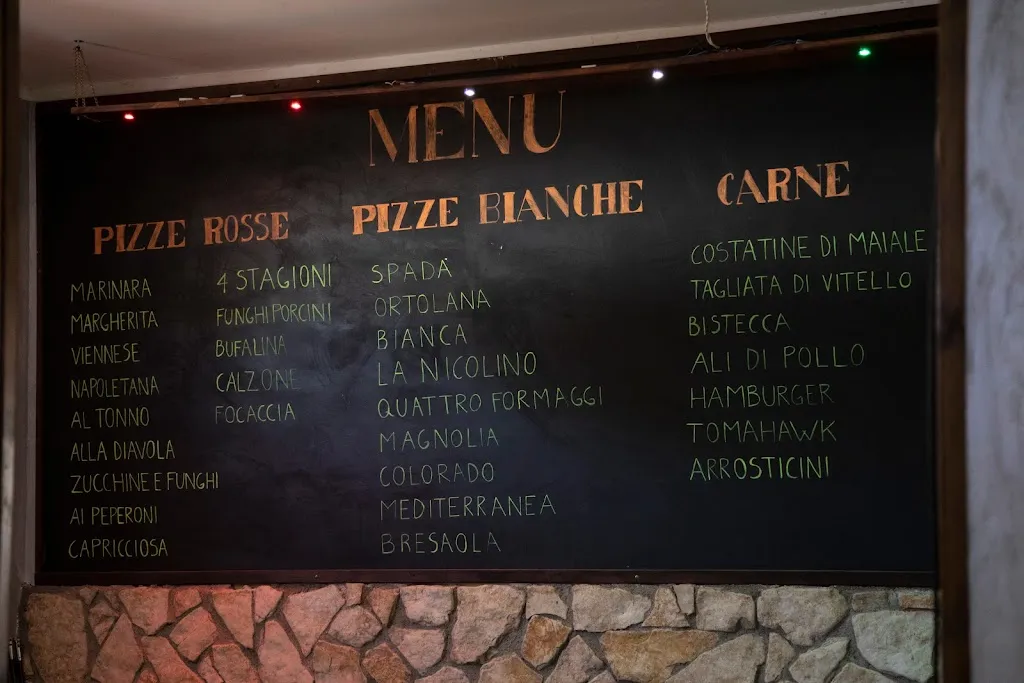 MENU
PIZZE ROSSE
MARINARA
MARGHERITA
VIENNESE
NAPOLETANA
AL TONNO
ALLA DIAVOLA
ZUCCHINE E FUNGHI
AI PEPERONI
CAPRICCIOSA
4 STAGIONI
FUNGHI PORCINI
BUFALINA
CALZONE
FOCACCIA
PIZZE BIANCHE
SPADA
ORTOLANA
BIANCA
LA NICOLINO
QUATTRO FORMAGGI
MAGNOLIA
COLORADO
MEDITERRANEA
BRESAOLA
CARNE
COSTATINE DI MAIALE
TAGLIATA DI VITELLO
BISTECCA
ALI DI POLLO
HAMBURGER
TOMAHAWK
ARROSTICINI